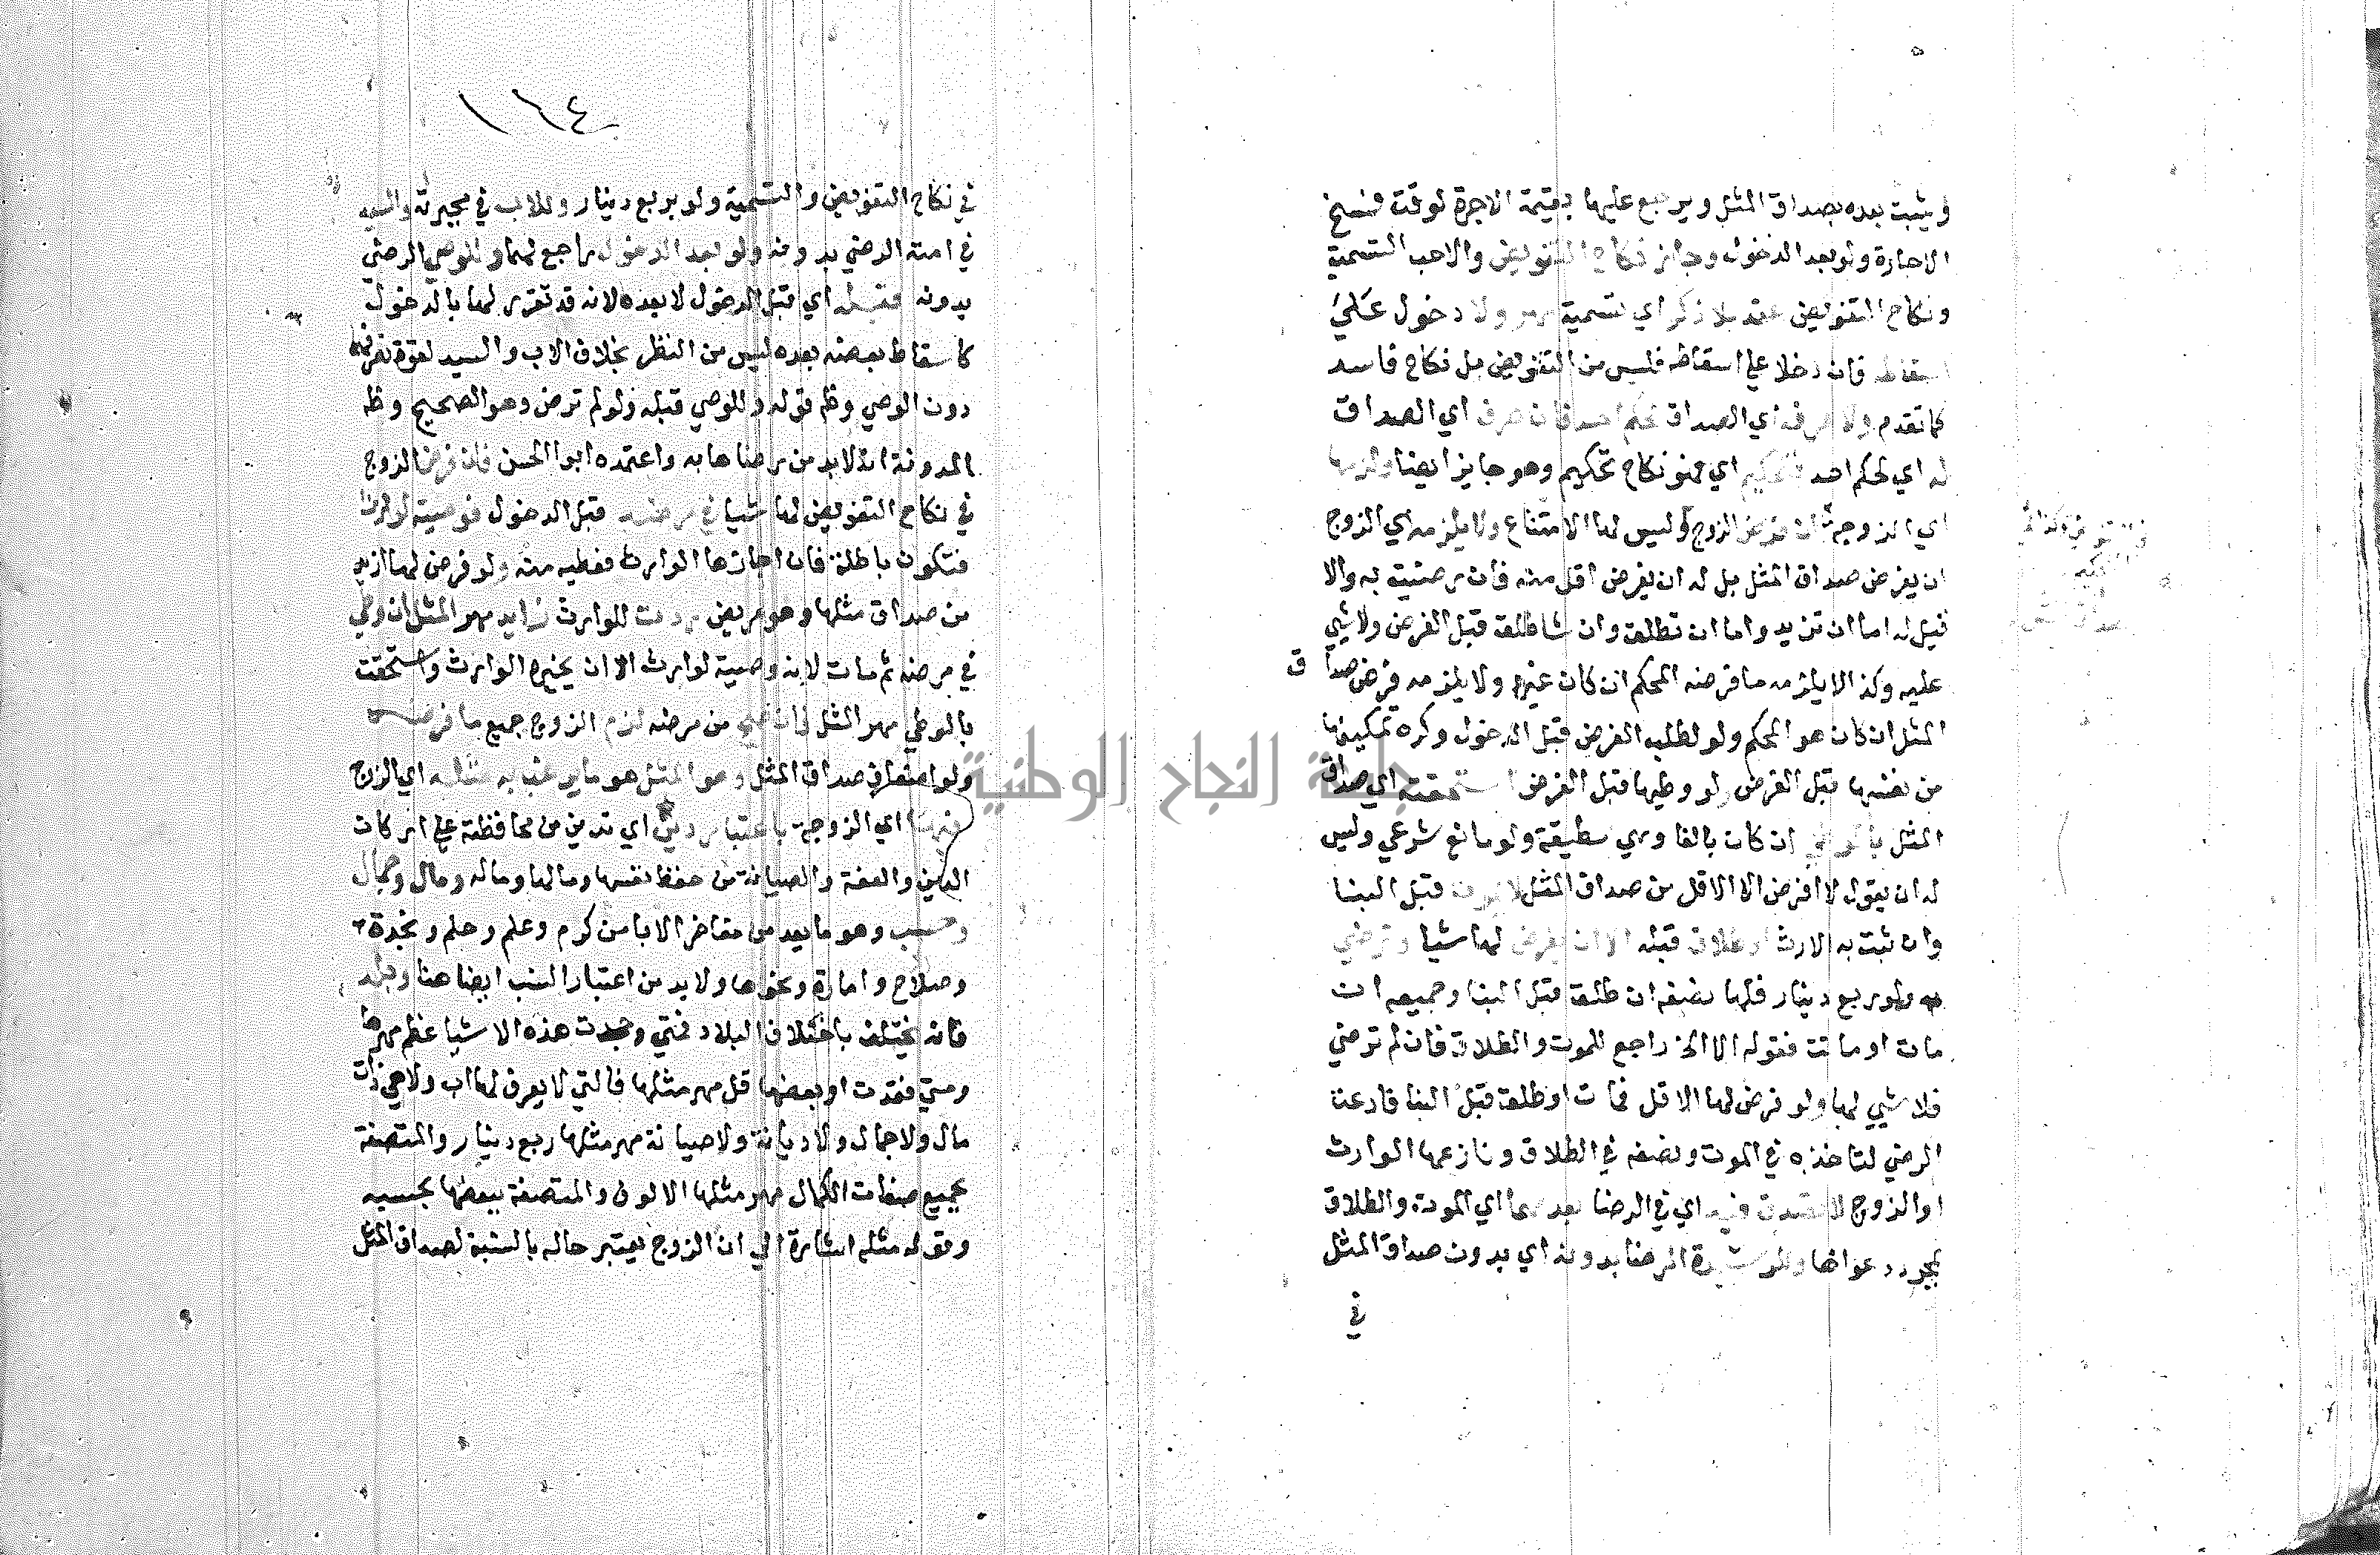 ويثبت بعده بصداق المثل ويرجع عليها بقيمة الاجرة لوقت فسخ
الاجارة ولو بعد الدخول وجاز نكاح التفويض والاحب التسمية
ونكاح التفويض عقد بلا ذكر اي تسمية مهر ولا دخول علي
اسقاطه فان دخلا علي اسقاطه فليس من التفويض بل نكاح فاسد
كما تقدم ولا صرفه اي الصداق لحكم احد فان صرف اي الصداق
له اي لحكم احد فتحكيم اي فهو نكاح تحكيم وهو جايز ايضا ولزمها
اي الزوجة ان فرض الزوج وليس لها الامتناع ولا يلزمه اي الزوج
ان يفرض صداق المثل بل له ان يفرض اقل منه فان رضيت به والا
قيل له اما ان تزيد واما ان تطلق وان شا طلق قبل الفرض ولا شي
عليه وكذا لا يلزمه ما فرضه المحكم ان كان غيره ولا يلزمه فرض صداق
المثل ان كان هو المحكم ولو لطلب الفرض قبل الدخول وكره تمكينها
من نفسها قبل الفرض ولو وطيها قبل الفرض استحقته اي صداق
المثل بالوطي ان كان بالغا وهي مطيقة ولو مانع شرعي وليس
له ان يقول لا افرض الا الاقل من صداق المثل لا بموت قبل البنا
وان ثبت به الارث او طلاق قبله الا ان يفرض لها شيا وترضي
به ولو ربع دينار فلها نصفه ان طلق قبل البنا وجميعه ان
مات او ماتت فقوله الا الخ راجع للموت والطلاق فان لم ترضي
فلا شي لها ولو فرض لها الاقل فمات او طلق قبل البنا فادعت
الرضي لتاخذه في الموت ونصفه في الطلاق ونازعها الوارث
او الزوج لا تصدق فيه اي في الرضا بعدهما اي الموت والطلاق
بمجرد دعواها وللرشيدة الرضا بدونه اي بدون صداق المثل
في
١١٤
في نكاح التفويض والتسمية ولو بربع دينار وللاب في مجبرته والسيد
في امته الرضي بدونه ولو بعد الدخول راجع لهما وللوصي الرضي
بدونه قبله اي قبل الدخول لا بعده لانه قد تقرر لها بالدخول
كاسقاط بعضه بعده ليس من النظر بخلاف الاب والسيد لقوة تصرفهما
دون الوصي وظ قوله وللوصي قبله ولو لم ترض وهو الصحيح وظ
المدونة انه لا بد من رضاها به واعتمده ابو الحسن فان فرض الزوج
في نكاح التفويض لها شيا في مرضه قبل الدخول فوصية لوارث
فتكون باطلة فان اجازها الوارث فعطيه منه ولو فرض لها ازيد
من صداق مثلها وهو مريض ردت للوارث زايد مهر المثل ان وطي
في مرضه ثم مات لانه وصية لوارث الا ان يجيزه الوارث واستحقت
بالوطي مهر المثل فان صح من مرضه لزم الزوج جميع ما فرضه
ولو اضعاف صداق المثل وهو المثل هو ما يرغب به مثله اي الزوج
فيها اي الزوجة باعتبار دين اي تدين من محافظة علي اركان
الدين والعفة والصيانة من حفظ نفسها ومالها وماله ومال وجمال
وحسب وهو ما يعد من مفاخر الابا من كرم وعلم وحلم ونجدة
وصلاح وامارة ونحوها ولا بد من اعتبار النسب ايضا هنا وبلد
فانه يختلف باختلاف البلاد فمتي وجدت هذه الاشيا عظم مهرها
ومتي فقدت او بعضها قل مهر مثلها فالتي لا يعرف لها اب ولا هي ذات
مال ولا جمال ولا ديانة ولا صيانة مهر مثلها ربع دينار والمتصفة
بجميع صفات الكمال مهر مثلها الالوف والمتصفة ببعضها بحسبه
وقوله مثله اشارة الي ان الزوج يعتبر حاله بالنسبة لصداق المثل
جامعة النجاح الوطنية